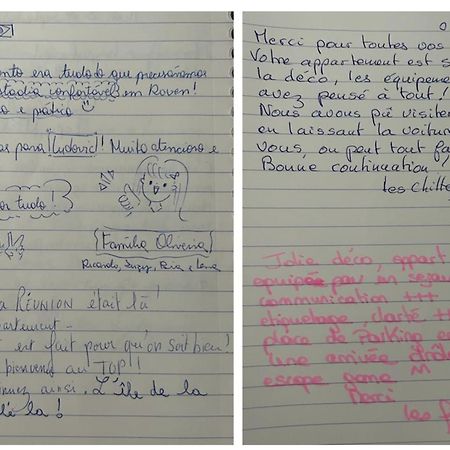 ento era tudo do que precisávamos
estadia confortável em Rouen!
o e prático
as para Ludovic! Muito atencioso e
or tudo!
Família Oliveira
Ricardo,
a RÉUNION était là!
partement -
est fait pour qu'on soit bien!
bienvenu au TOP!!
nuez ainsi. L'île de la
là!
Merci pour toutes vos
Votre appartement est s
la déco, les équipeme
avez pensé à tout!
Nous avons pu visiter
en laissant la voitur
vous, on peut tout fa
Bonne continuation!
les Chilte
Jolie déco, appart
équipée pour un séjour
communication +++
étiquetage clarté ++
place de Parking e
une arrivée drôle
escape game
Merci
les f